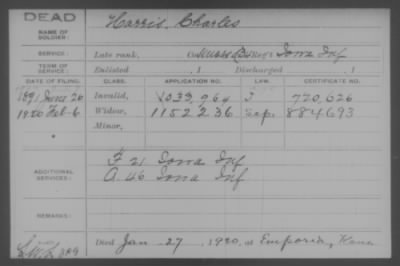 DEAD
NAME OF SOLDIER: Harris, Charles
SERVICE: Late rank, Co. Reg't Iowa Inf
TERM OF SERVICE: Enlisted , 1 Discharged , 1
DATE OF FILING. CLASS. APPLICATION NO. LAW. CERTIFICATE NO.
1891 June 26 Invalid, 1033,964 3 720,626
1920 Feb 6 Widow, 1152236 Sep. 884693
Minor,
ADDITIONAL SERVICES: F 21 Iowa Inf
A. 46 Iowa Inf
REMARKS:
Died Jan 27, 1920, at Emporia, Kans